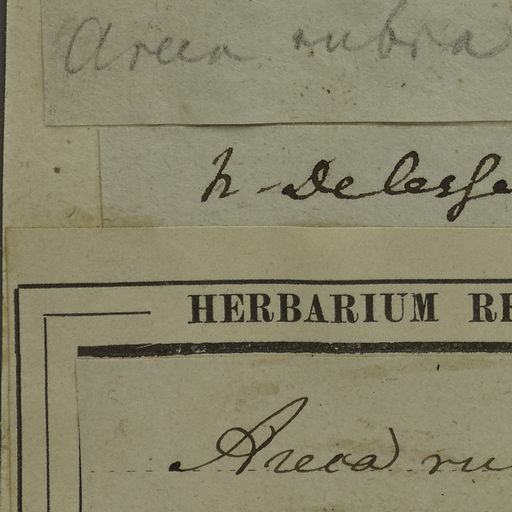 Areca rubra
h. Delesse
HERBARIUM RE
Areca ru